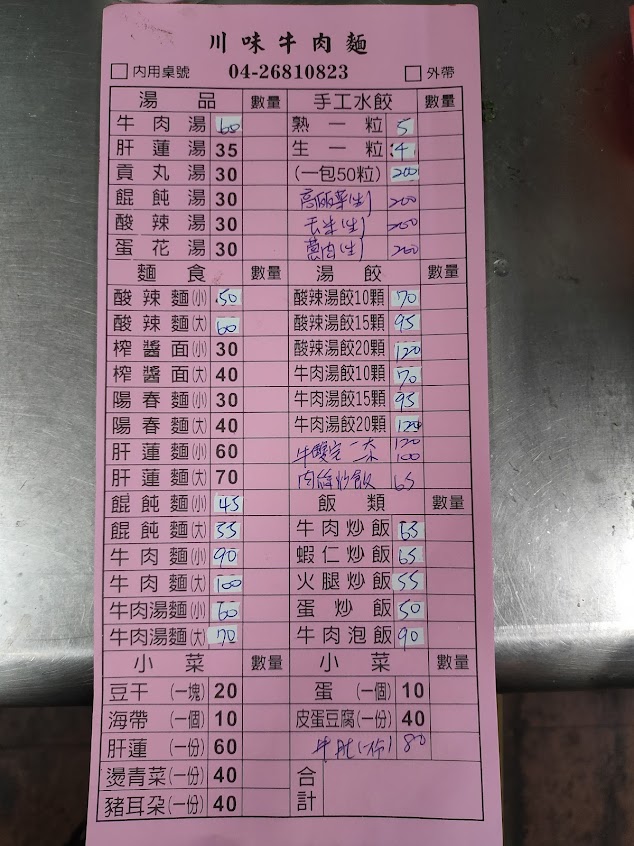 川味牛肉麵
內用桌號 04-26810823 外帶
湯品 數量 手工水餃 數量
牛肉湯 60 熟一粒 5
肝蓮湯 35 生一粒 4
貢丸湯 30 (一包50粒) 200
餛飩湯 30 高麗菜(生) 200
酸辣湯 30 韭菜(生) 200
蛋花湯 30 (生) 200
麵食 數量 湯餃 數量
酸辣麵(小) 50 酸辣湯餃10顆 70
酸辣麵(大) 60 酸辣湯餃15顆 95
榨醬面(小) 30 酸辣湯餃20顆 120
榨醬面(大) 40 牛肉湯餃10顆 70
陽春麵(小) 30 牛肉湯餃15顆 95
陽春麵(大) 40 牛肉湯餃20顆 120
肝蓮麵(小) 60 牛雙宝 大 120 小 100
肝蓮麵(大) 70 肉絲炒飯 65
餛飩麵(小) 45 飯類 數量
餛飩麵(大) 55 牛肉炒飯 65
牛肉麵(小) 90 蝦仁炒飯 65
牛肉麵(大) 100 火腿炒飯 55
牛肉湯麵(小) 60 蛋炒飯 50
牛肉湯麵(大) 70 牛肉泡飯 90
小菜 數量 小菜 數量
豆干(一塊) 20 蛋(一個) 10
海帶(一個) 10 皮蛋豆腐(一份) 40
肝蓮(一份) 60 牛肚(一份) 80
燙青菜(一份) 40 合計
豬耳朶(一份) 40